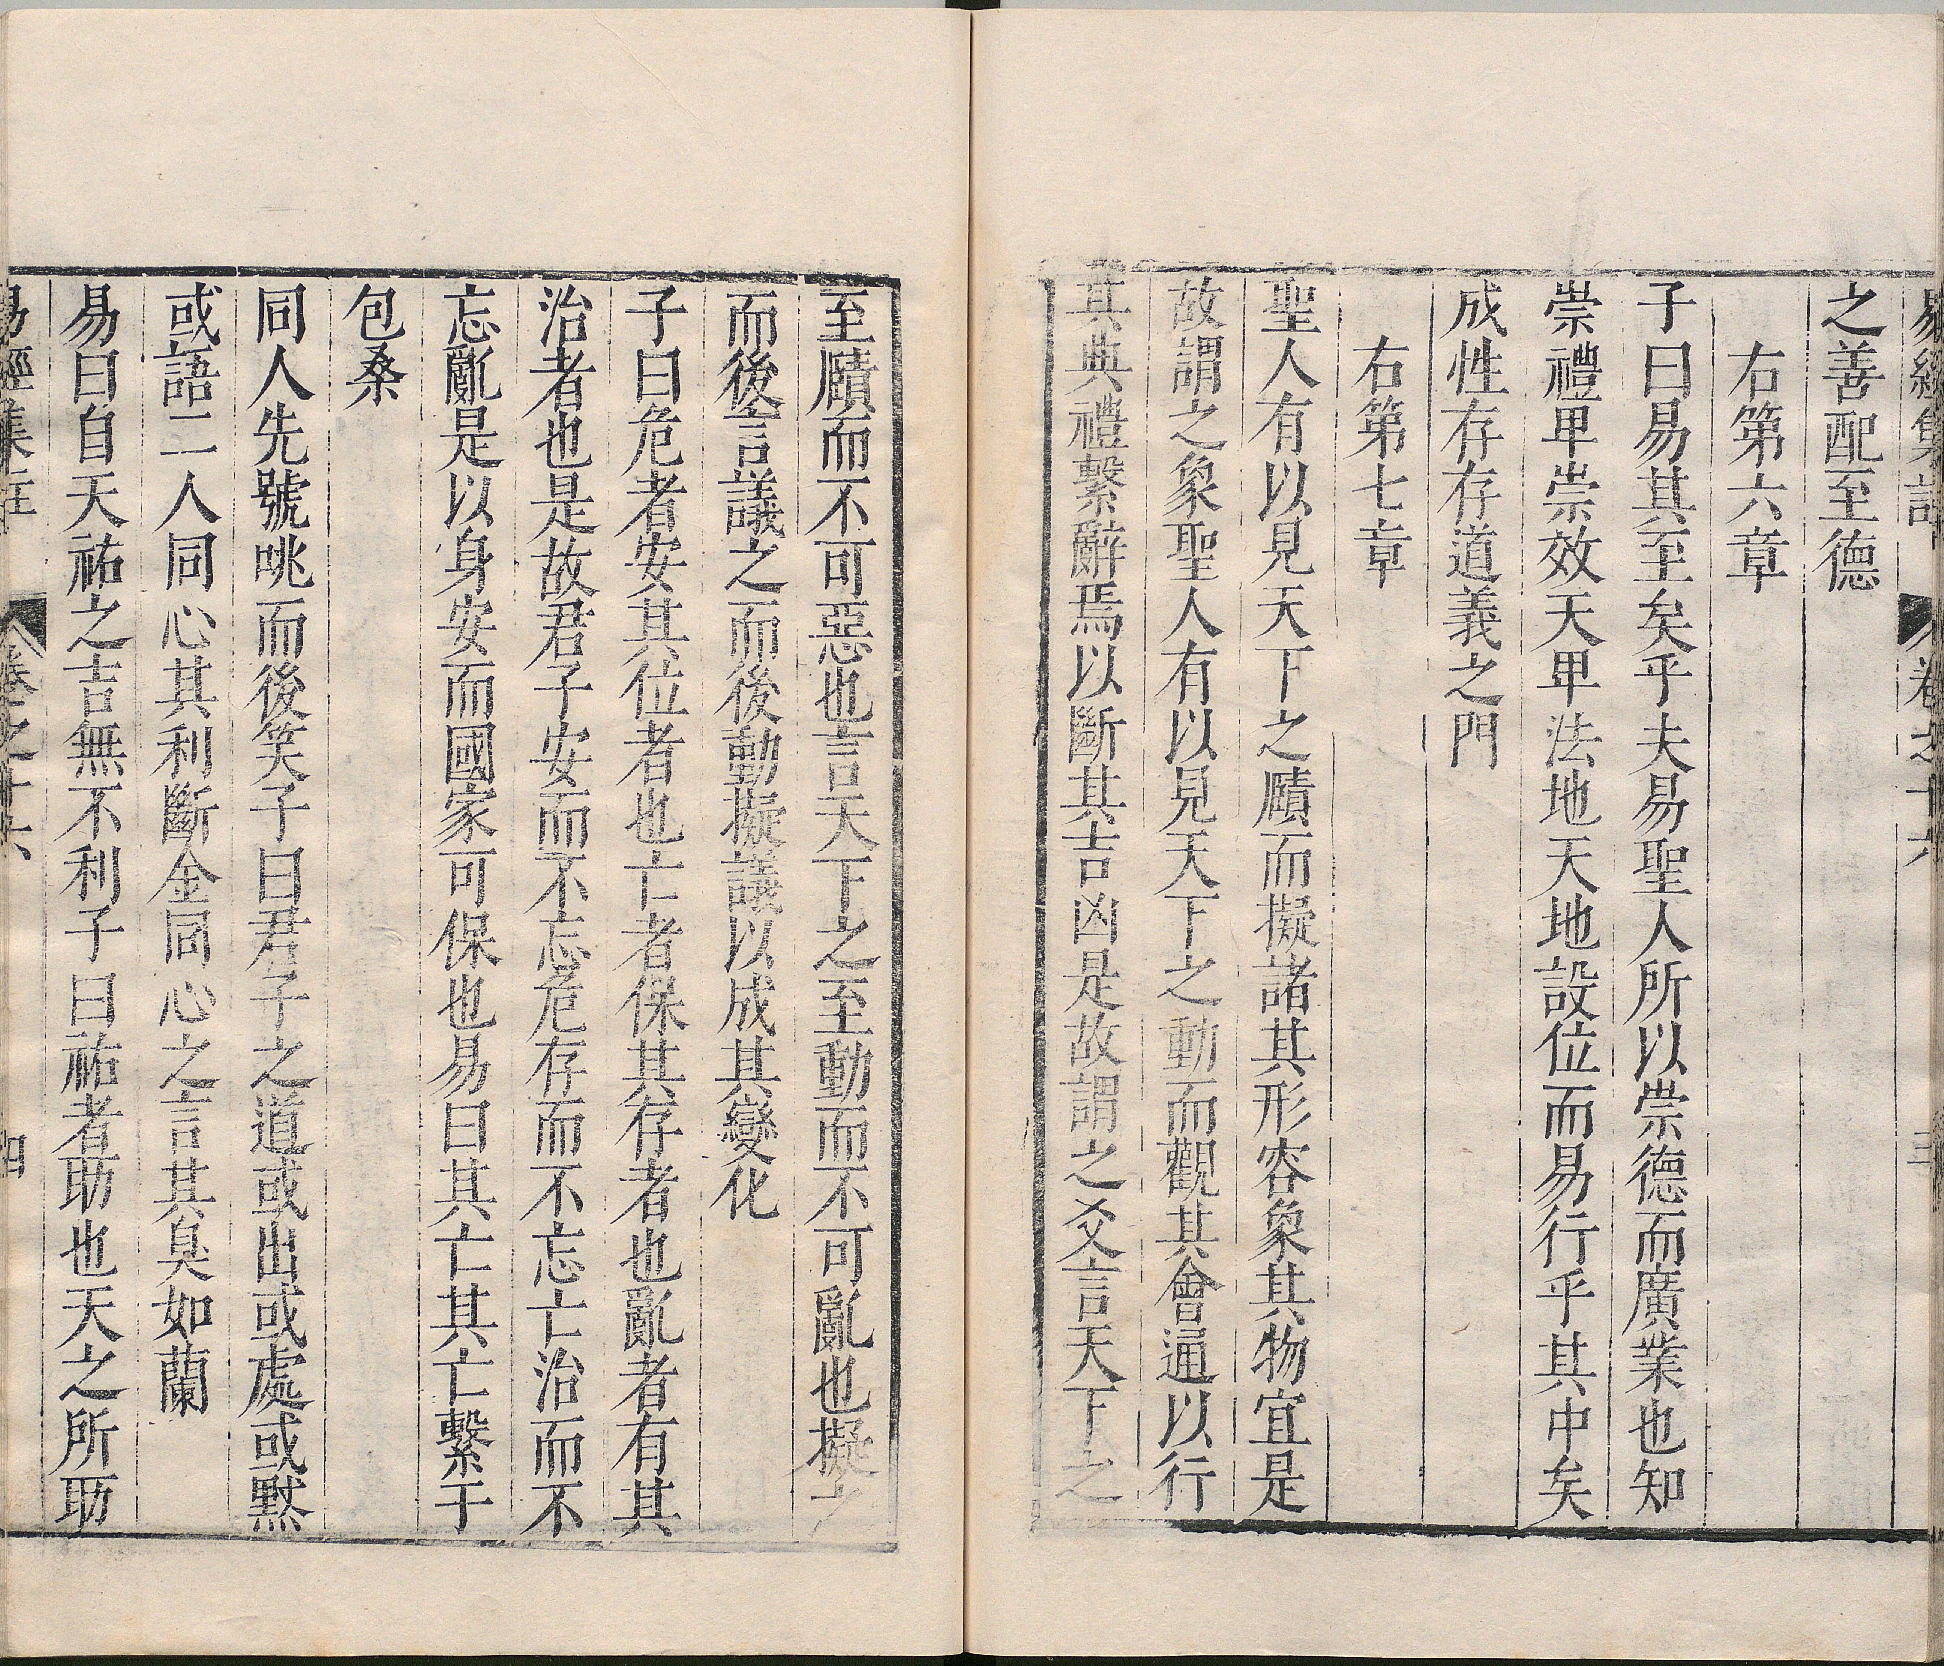 易經集註 卷之十六 三
之善配至德
右第六章
子曰易其至矣乎夫易聖人所以崇德而廣業也知
崇禮卑崇效天卑法地天地設位而易行乎其中矣
成性存存道義之門
右第七章
聖人有以見天下之賾而擬諸其形容象其物宜是
故謂之象聖人有以見天下之動而觀其會通以行
其典禮繫辭焉以斷其吉凶是故謂之爻言天下之
至賾而不可惡也言天下之至動而不可亂也擬之
而後言議之而後動擬議以成其變化
子曰危者安其位者也亡者保其存者也亂者有其
治者也是故君子安而不忘危存而不忘亡治而不
忘亂是以身安而國家可保也易曰其亡其亡繫于
包桑
同人先號咷而後笑子曰君子之道或出或處或默
或語二人同心其利斷金同心之言其臭如蘭
易曰自天祐之吉無不利子曰祐者助也天之所助
易經集註 卷之十六 四